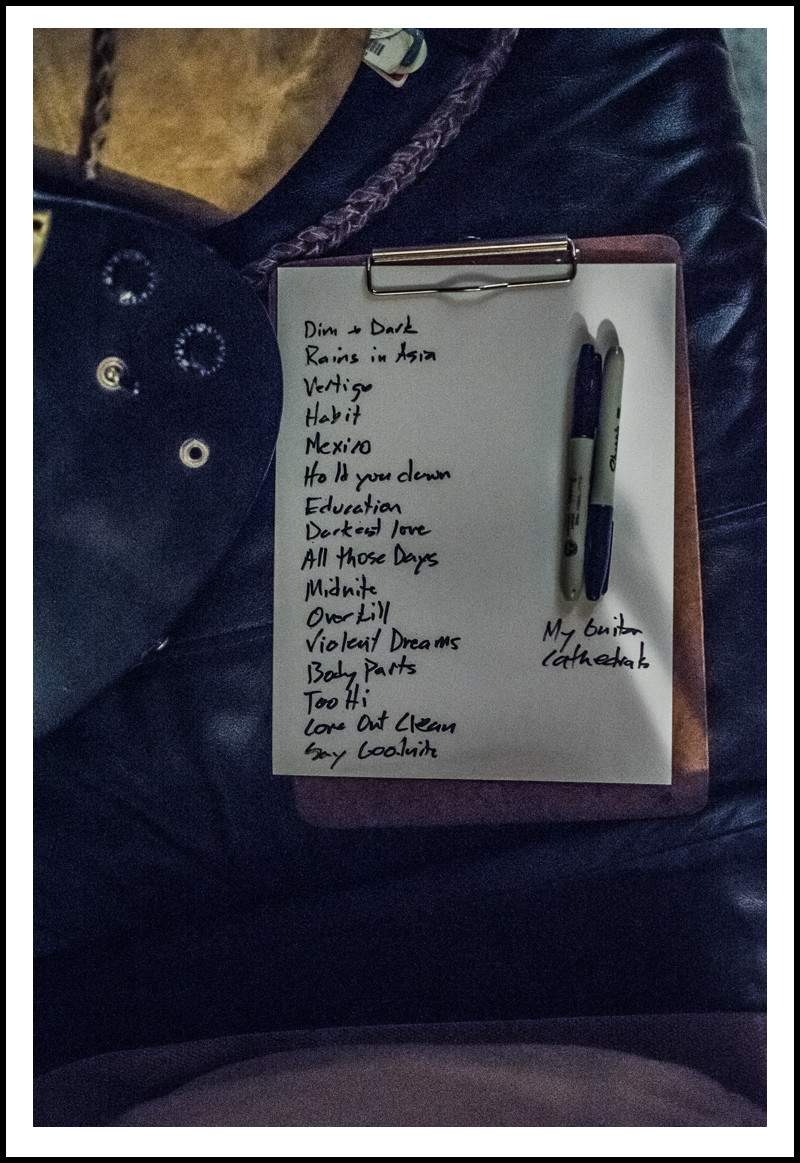 Dim + Dark
Rains in Asia
Vertigo
Habit
Mexico
Hold you down
Education
Darkest love
All those Days
Midnite
Overkill
Violent Dreams
Body Parts
Too Hi
Love Out Clean
Say Goodnite
My Guitar
Cathedrals